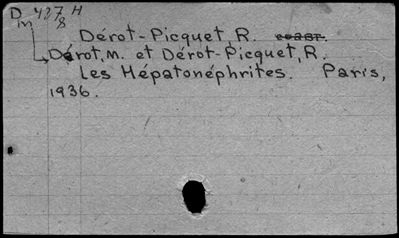 D 427 H
in 8
Dérot-Picquet, R.
Dérot, M. et Dérot-Picquet, R.
Les Hépatonéphrites. Paris,
1936.